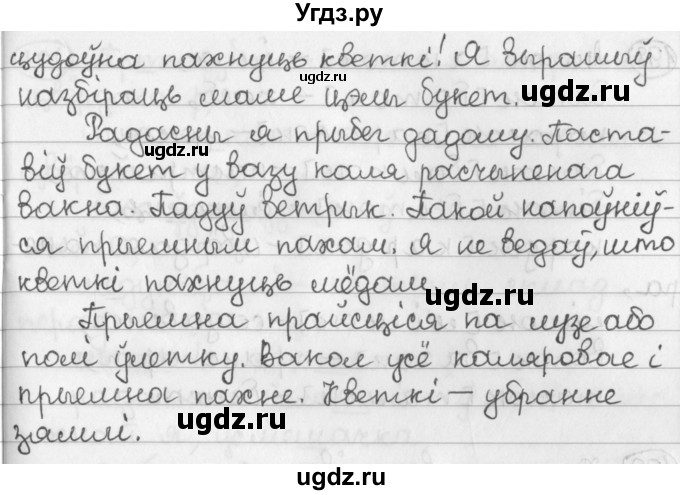 Угдз.ру
цудоўна пахнуць кветкі! Я вырашыў
ugdz.ru
назбіраць маме цэлы букет.
ugdz.ru
Радасны я прыбег дадому. Паста-
ugdz.ru
віў букет у вазу каля расчыненага
вакна. Падуў ветрык. Пакой напоўніў-
ся прыемным пахам. Я не ведаў, што
кветкі пахнуць мёдам.
ugdz.ru
Прыемна прайсціся па лузе або
полі ўлетку. Вакол усё каляровае і
прыемна пахне. Кветкі — убранне
ugdz.ru
зямлі.
ugdz.ru